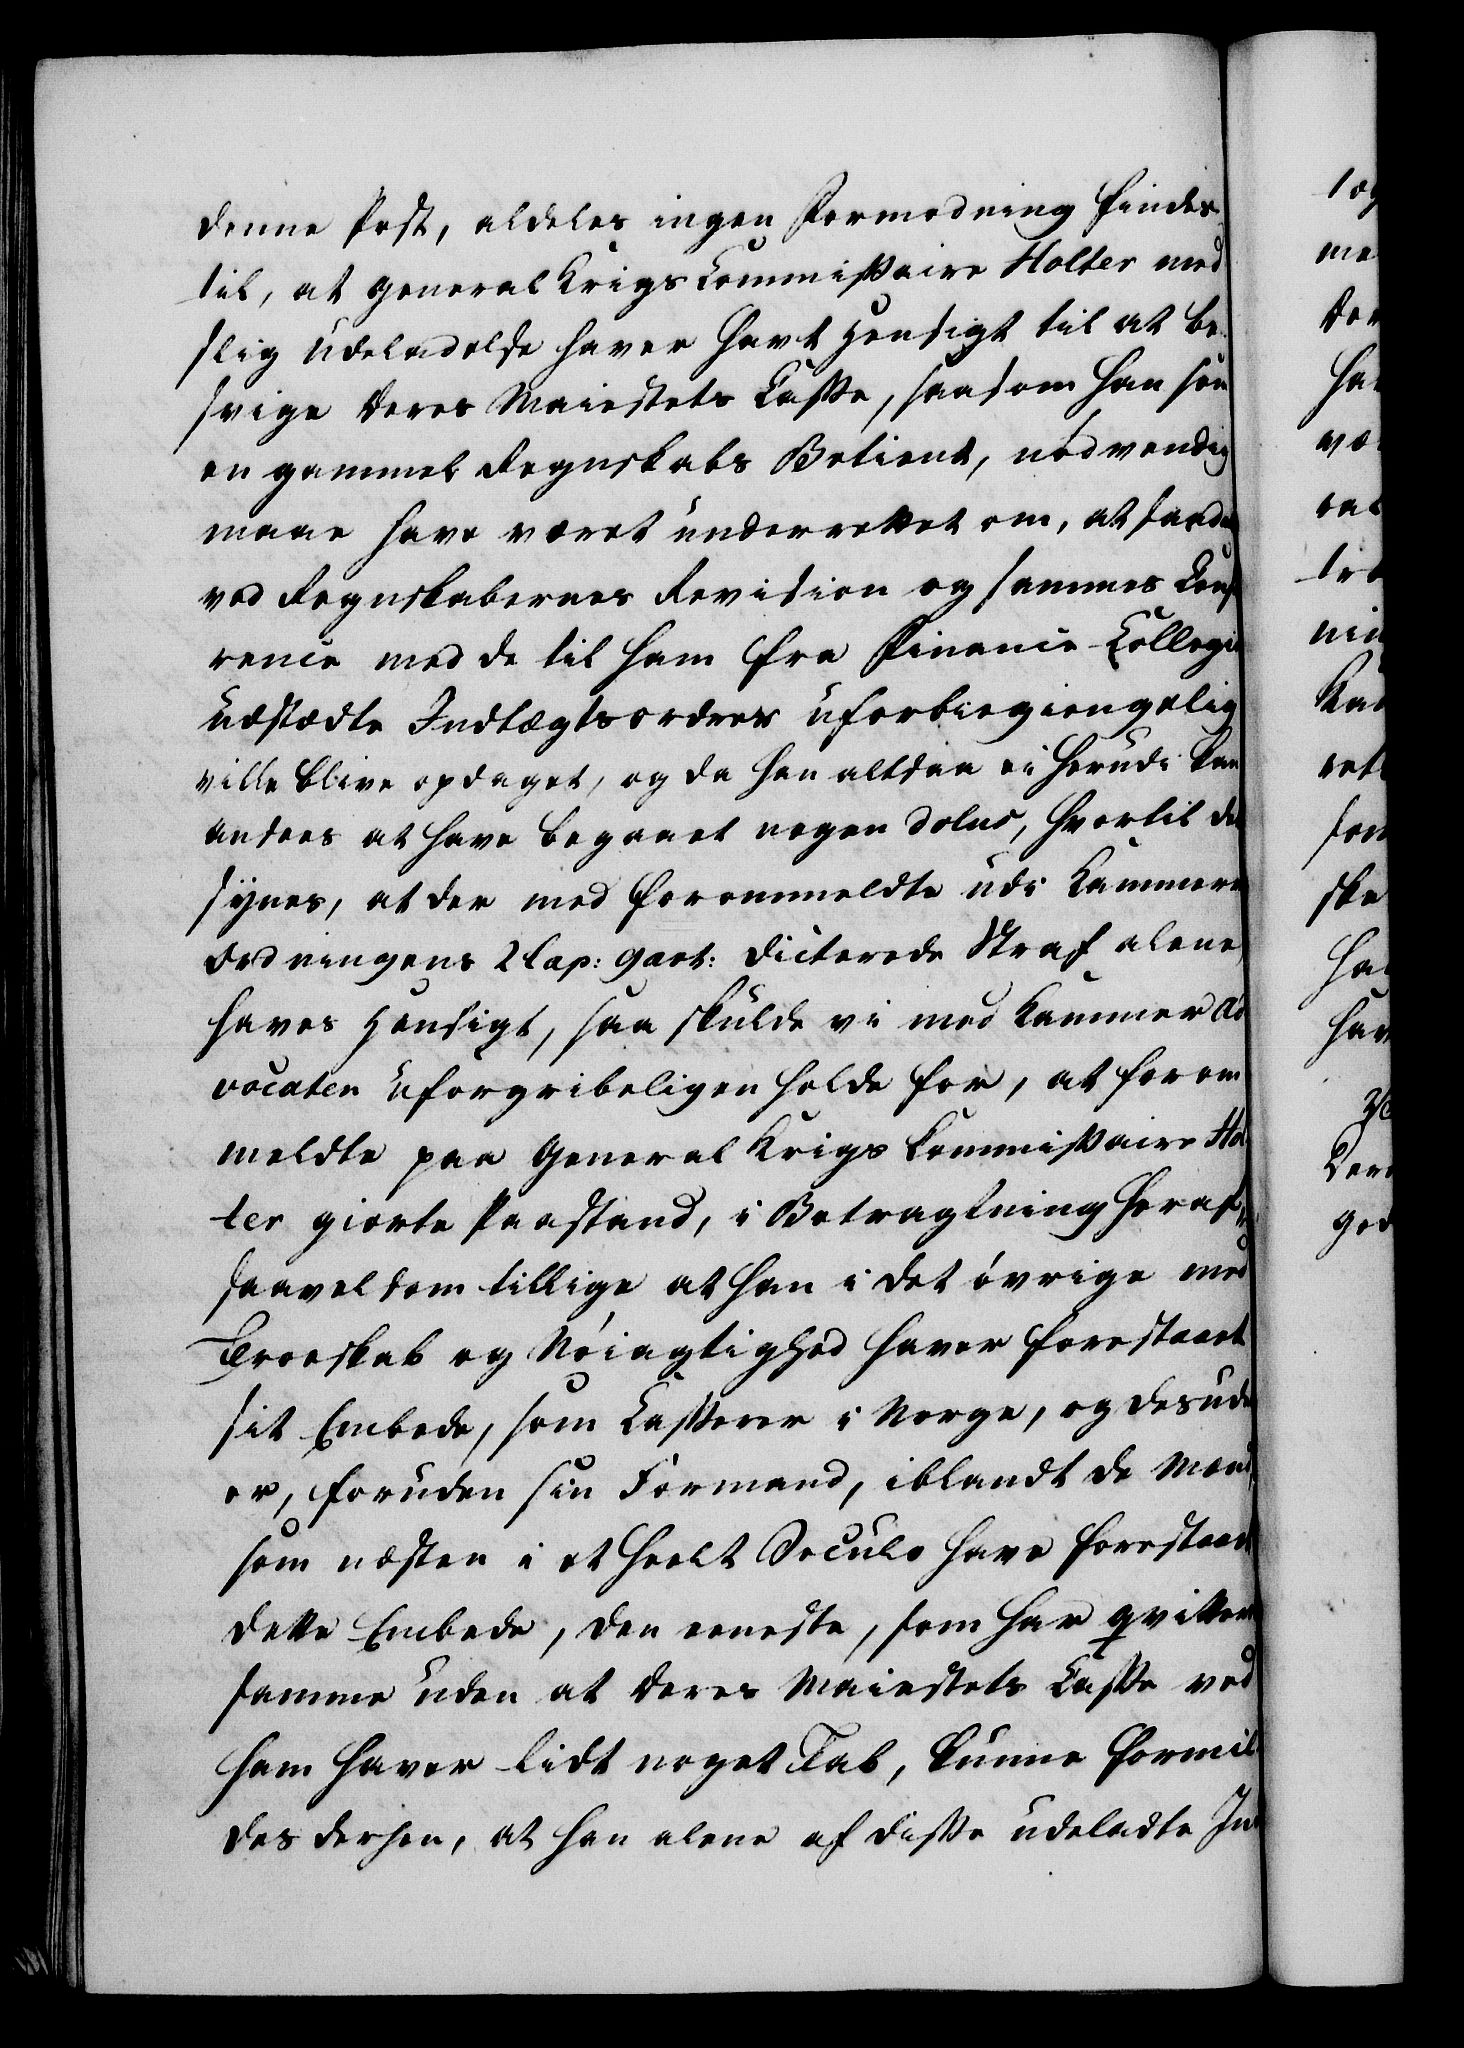 denne Post, aldeles ingen Formodning findes
til, at General Krigs Commissaire Holter med
slig Udeladelse haver havt Hensigt til at be-
svige Deres Maiestets Casse, saasom han som
en gammel Regnskabs Betient, nødvendig
maae have været underrettet om, at saadt
ved Regnskabernes Revision og sammes Confe
rence med de til ham fra Finance-Collegii
udstædte Indtægtsordres uforbiegiengelig
ville blive opdaget, og da han altsaa ei herudi kan
ansees at have begaaet nogen dolus, hvortil det
synes, at der med forommeldte udi Kammer
Ordningens 2 Cap: 9 art: dicterede Straf alene
haves Hensigt, saa skulde vi med Kammer Ad
vocaten uforgribeligen holde for, at forom
meldte paa General Krigs Commissaire Hol
ter giorte Paastand, i Betragtning heraf,
saavelsom tillige at han i det øvrige med
Troeskab og Nøiagtighed haver forestaaet
sit Embede, som Casserer i Norge, og desude
er, foruden sin Formand, iblandt de Mænd,
som næsten i et heelt Seculo have forestaaet
dette Embede, den eeneste, som har qvitteret
samme uden at Deres Maiestets Casse ved
ham haver lidt noget Tab, kunne formil
des derhen, at han alene af disse udeladte Ind
læg
me
Der
ha
væ
ral
tra
nin
Kad
ret
som
ske
ha
hav
Der
god